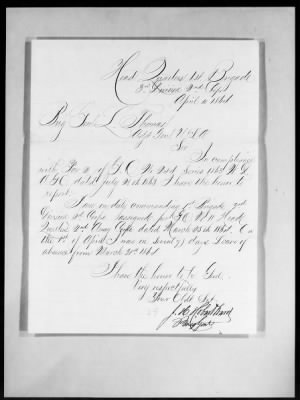 Head Quarters 1st Brigade
2nd Division 2nd Corps
April 11 1864
Brig Genl L Thomas
Adjt Genl U.S.A
Sir
In compliance
with Par of G.O. No Series 1863 W.D.
A.G.O. dated July 1863 I have the honor to
report.
I am in command 1st Brigade 2nd
Division 2nd Corps assigned per G.O. No 11 Head
Quarters 2nd Army Corps dated March 25th 1864. On
the 1st of April I was in days Leave of
absence from March 1864.
I have the honor to be Genl.
Very respectfully
Your Obdt Svt
Brig Genl